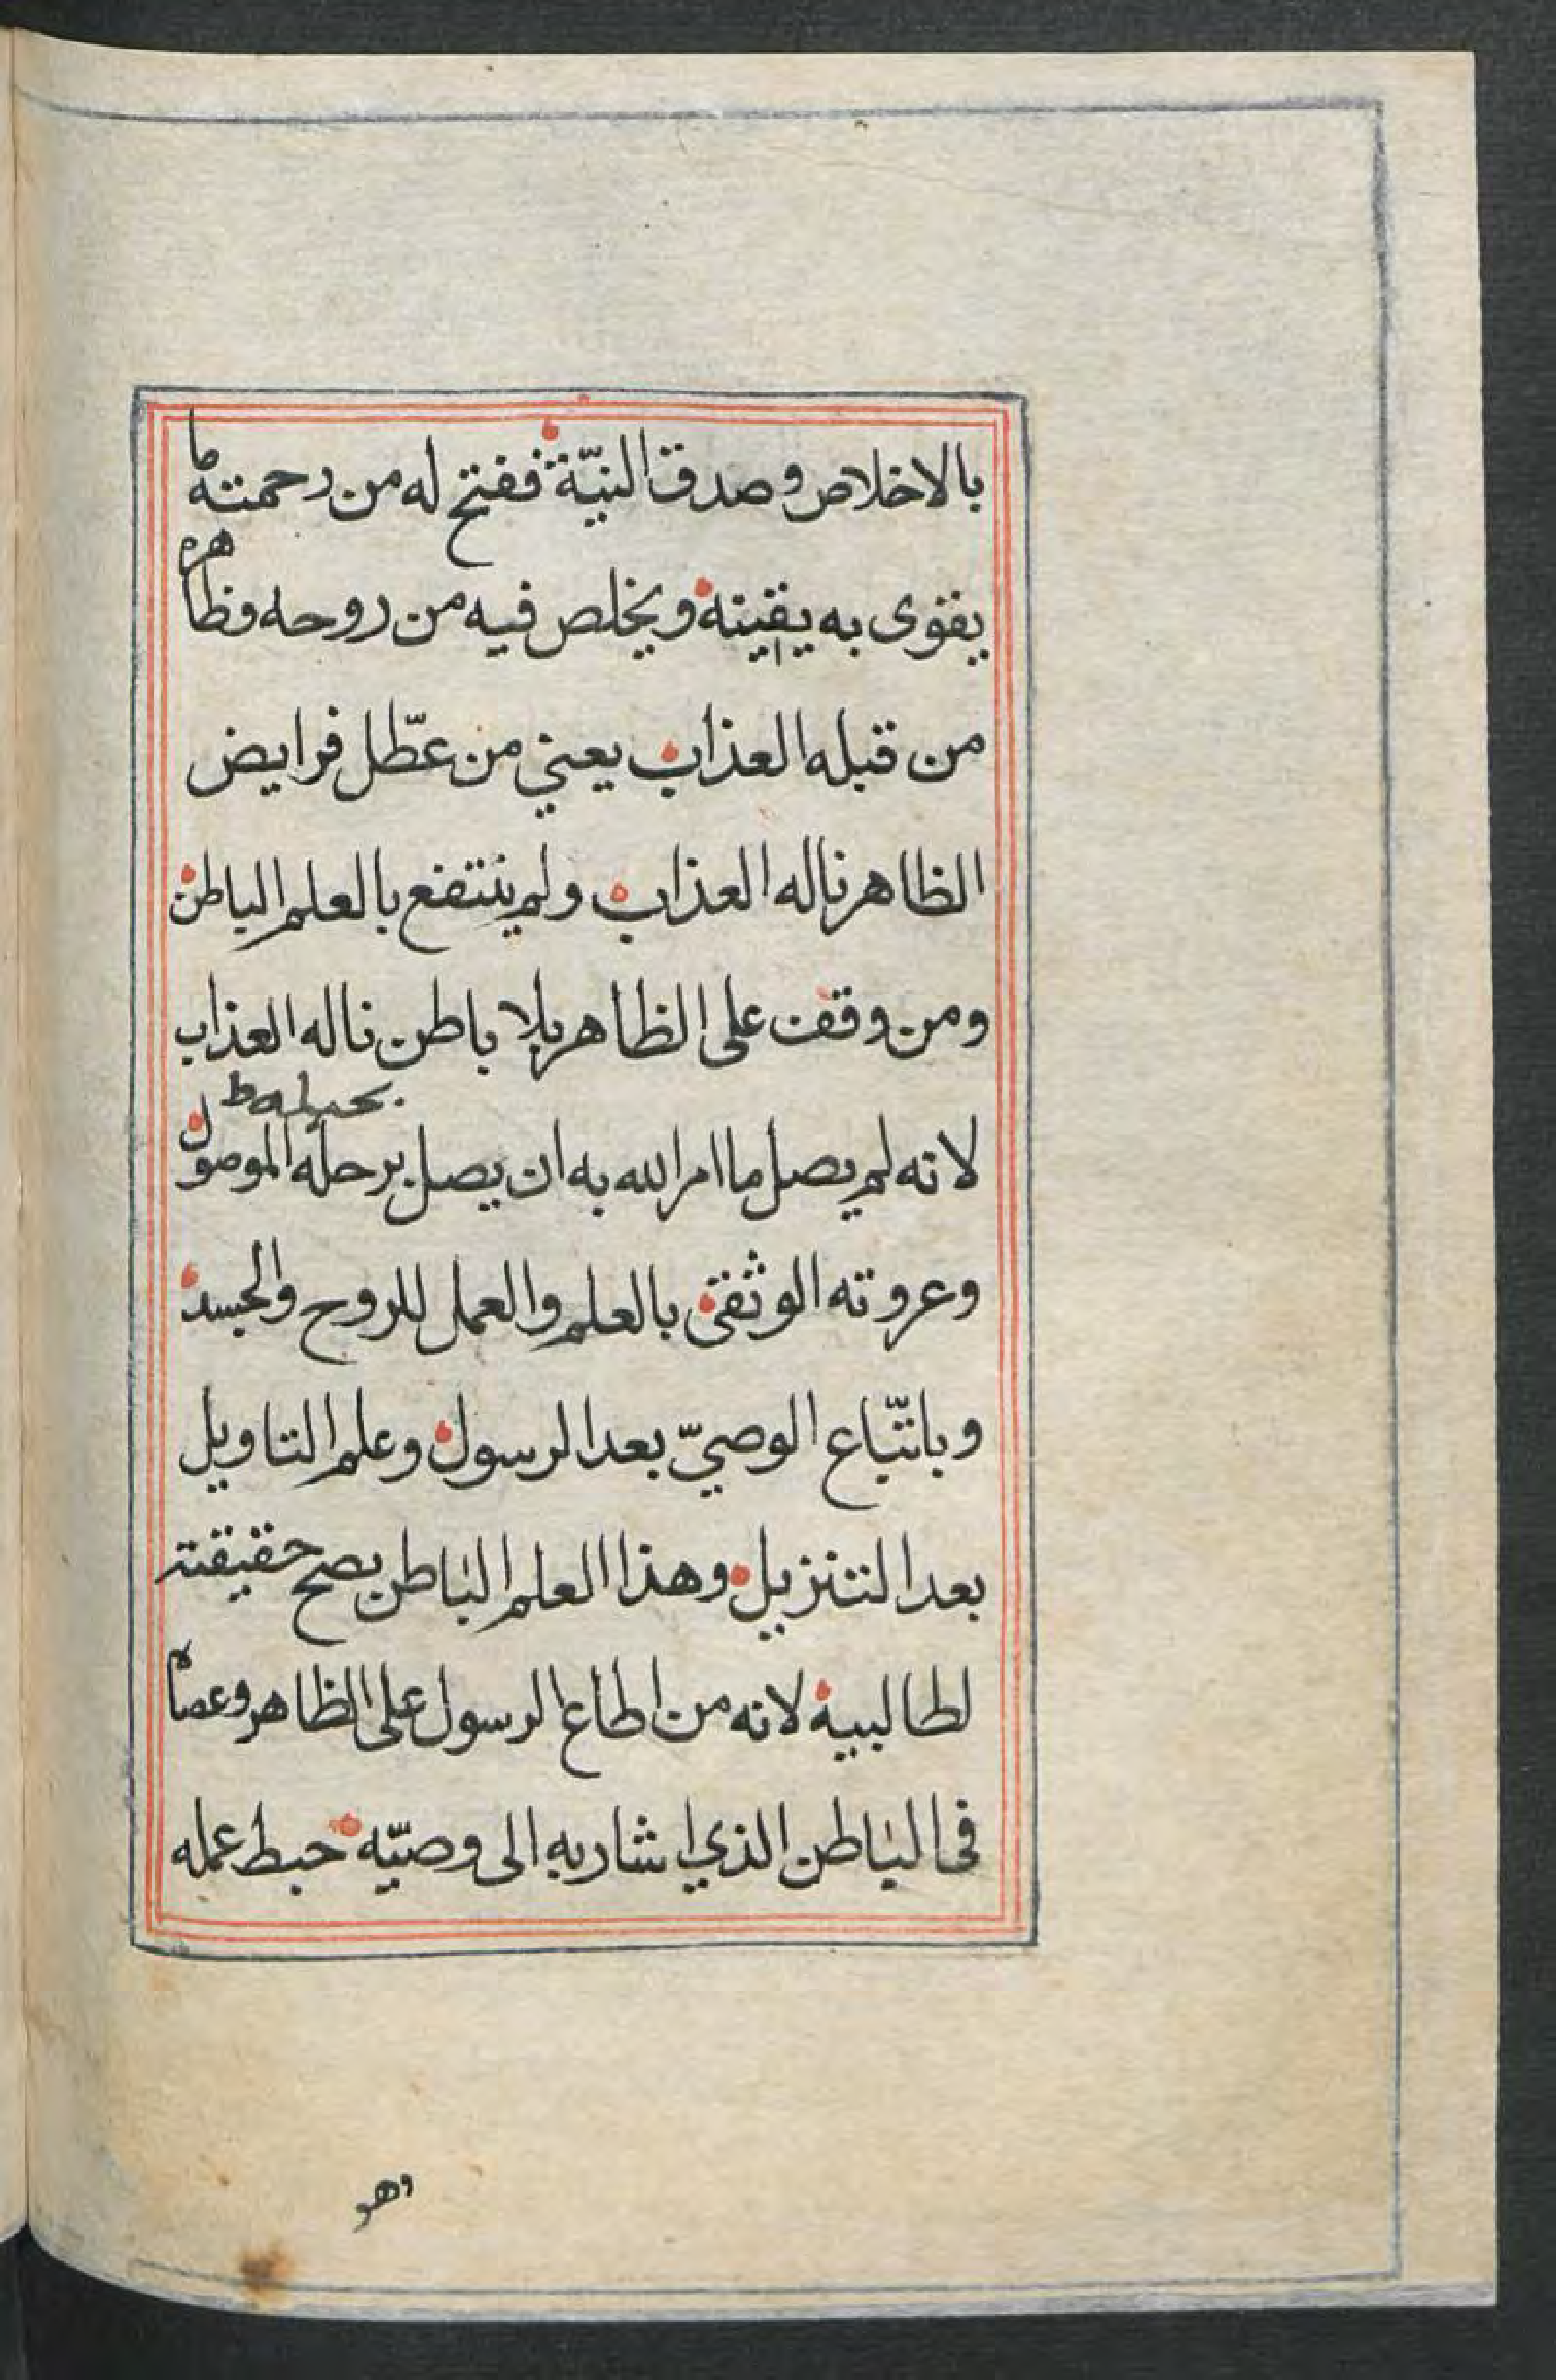 بالاخلاص وصدق النيّة ففتح له من رحمته ما
يقوى به يقينه ويخلص فيه من روحه وظاهره
من قبله العذاب يعني من عطّل فرايض
الظاهر ناله العذاب ولم ينتفع بالعلم الباطن
ومن وقف على الظاهر بلا باطن ناله العذاب
بحبله ط
لانه لم يصل ما امر الله به ان يصل برحله الموصول
وعروته الوثقى بالعلم والعمل للروح والجسد
وباتّباع الوصيّ بعد الرسول وعلم التاويل
بعد التنزيل وهذا العلم الباطن يصح حقيقته
لطالبيه لانه من اطاع الرسول على الظاهر وعصاه
في الباطن الذي اشار به الى وصيّه حبط عمله
وهو